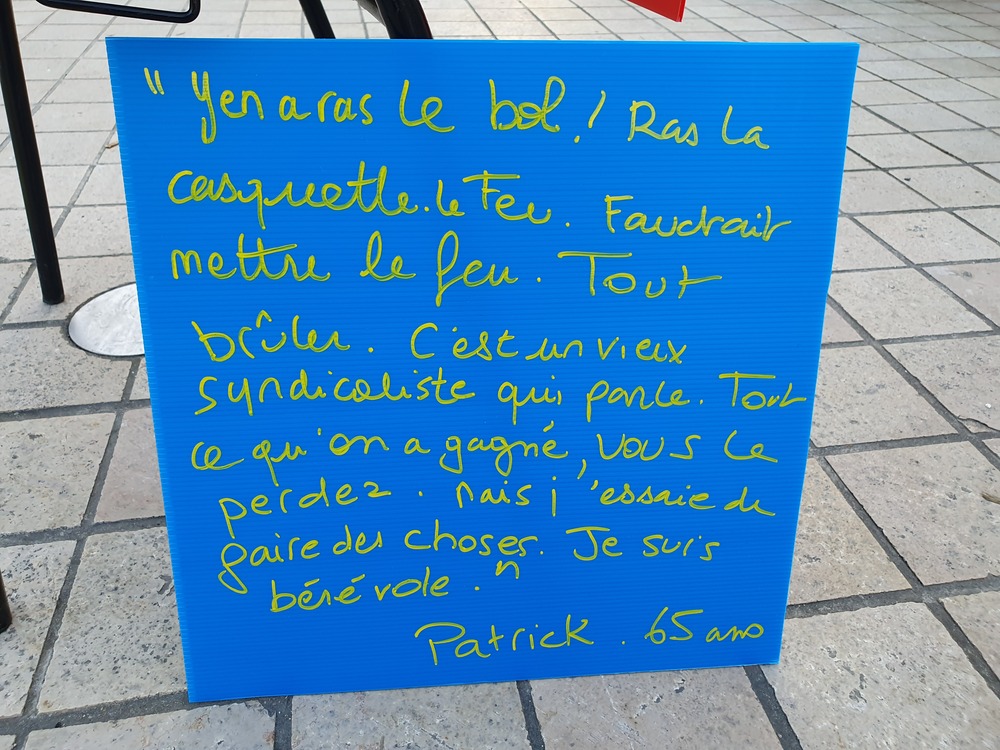 " Y en a ras le bol ! Ras la
casquette. le Feu. Faudrait
mettre le feu. Tout
brûler. C'est un vieux
syndicaliste qui parle. Tout
ce qu'on a gagné, vous le
perdez. Mais j'essaie de
faire des choses. Je suis
bénévole. "
Patrick. 65 ans